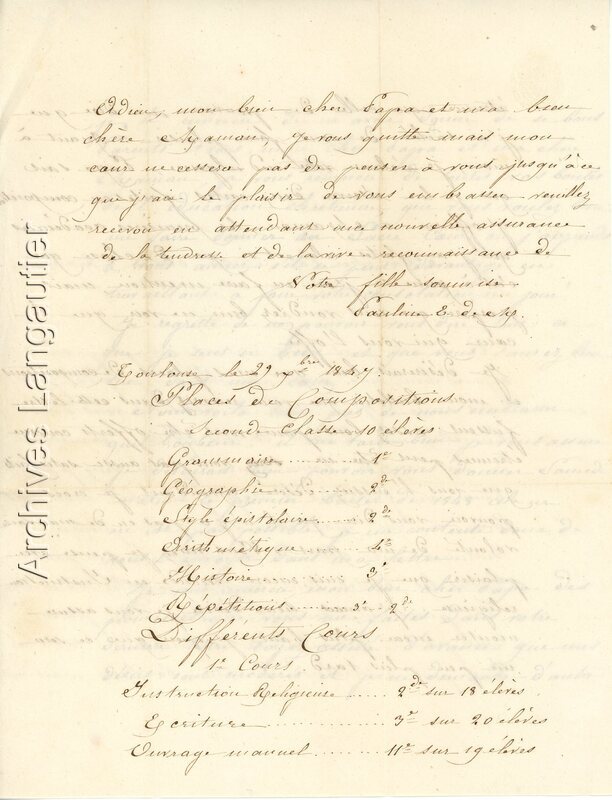 Adieu, mon bien cher Papa et ma bien
chère Maman, je vous quitte mais mon
cœur ne cessera pas de penser à vous jusqu'à ce
que j'aie le plaisir de vous embrasser veuillez
recevoir en attendant une nouvelle assurance
de la tendresse et de la vive reconnaissance de
Votre fille soumise
Pauline E. de M.
Toulouse le 29 xbre 1847.
Places de Compositions
Seconde Classe 10 élèves
Grammaire ........ 1e
Géographie ........ 2de
Style épistolaire ..... 2de
Arithmétique ...... 4e
Histoire 3e
Répétitions ........ 2de
Différents Cours
1e Cours
Instruction Religieuse ..... 2de sur 18 élèves.
Ecriture ........ 3e sur 20 élèves
Ouvrage manuel ........ 11e sur 19 élèves
Archives Langautier